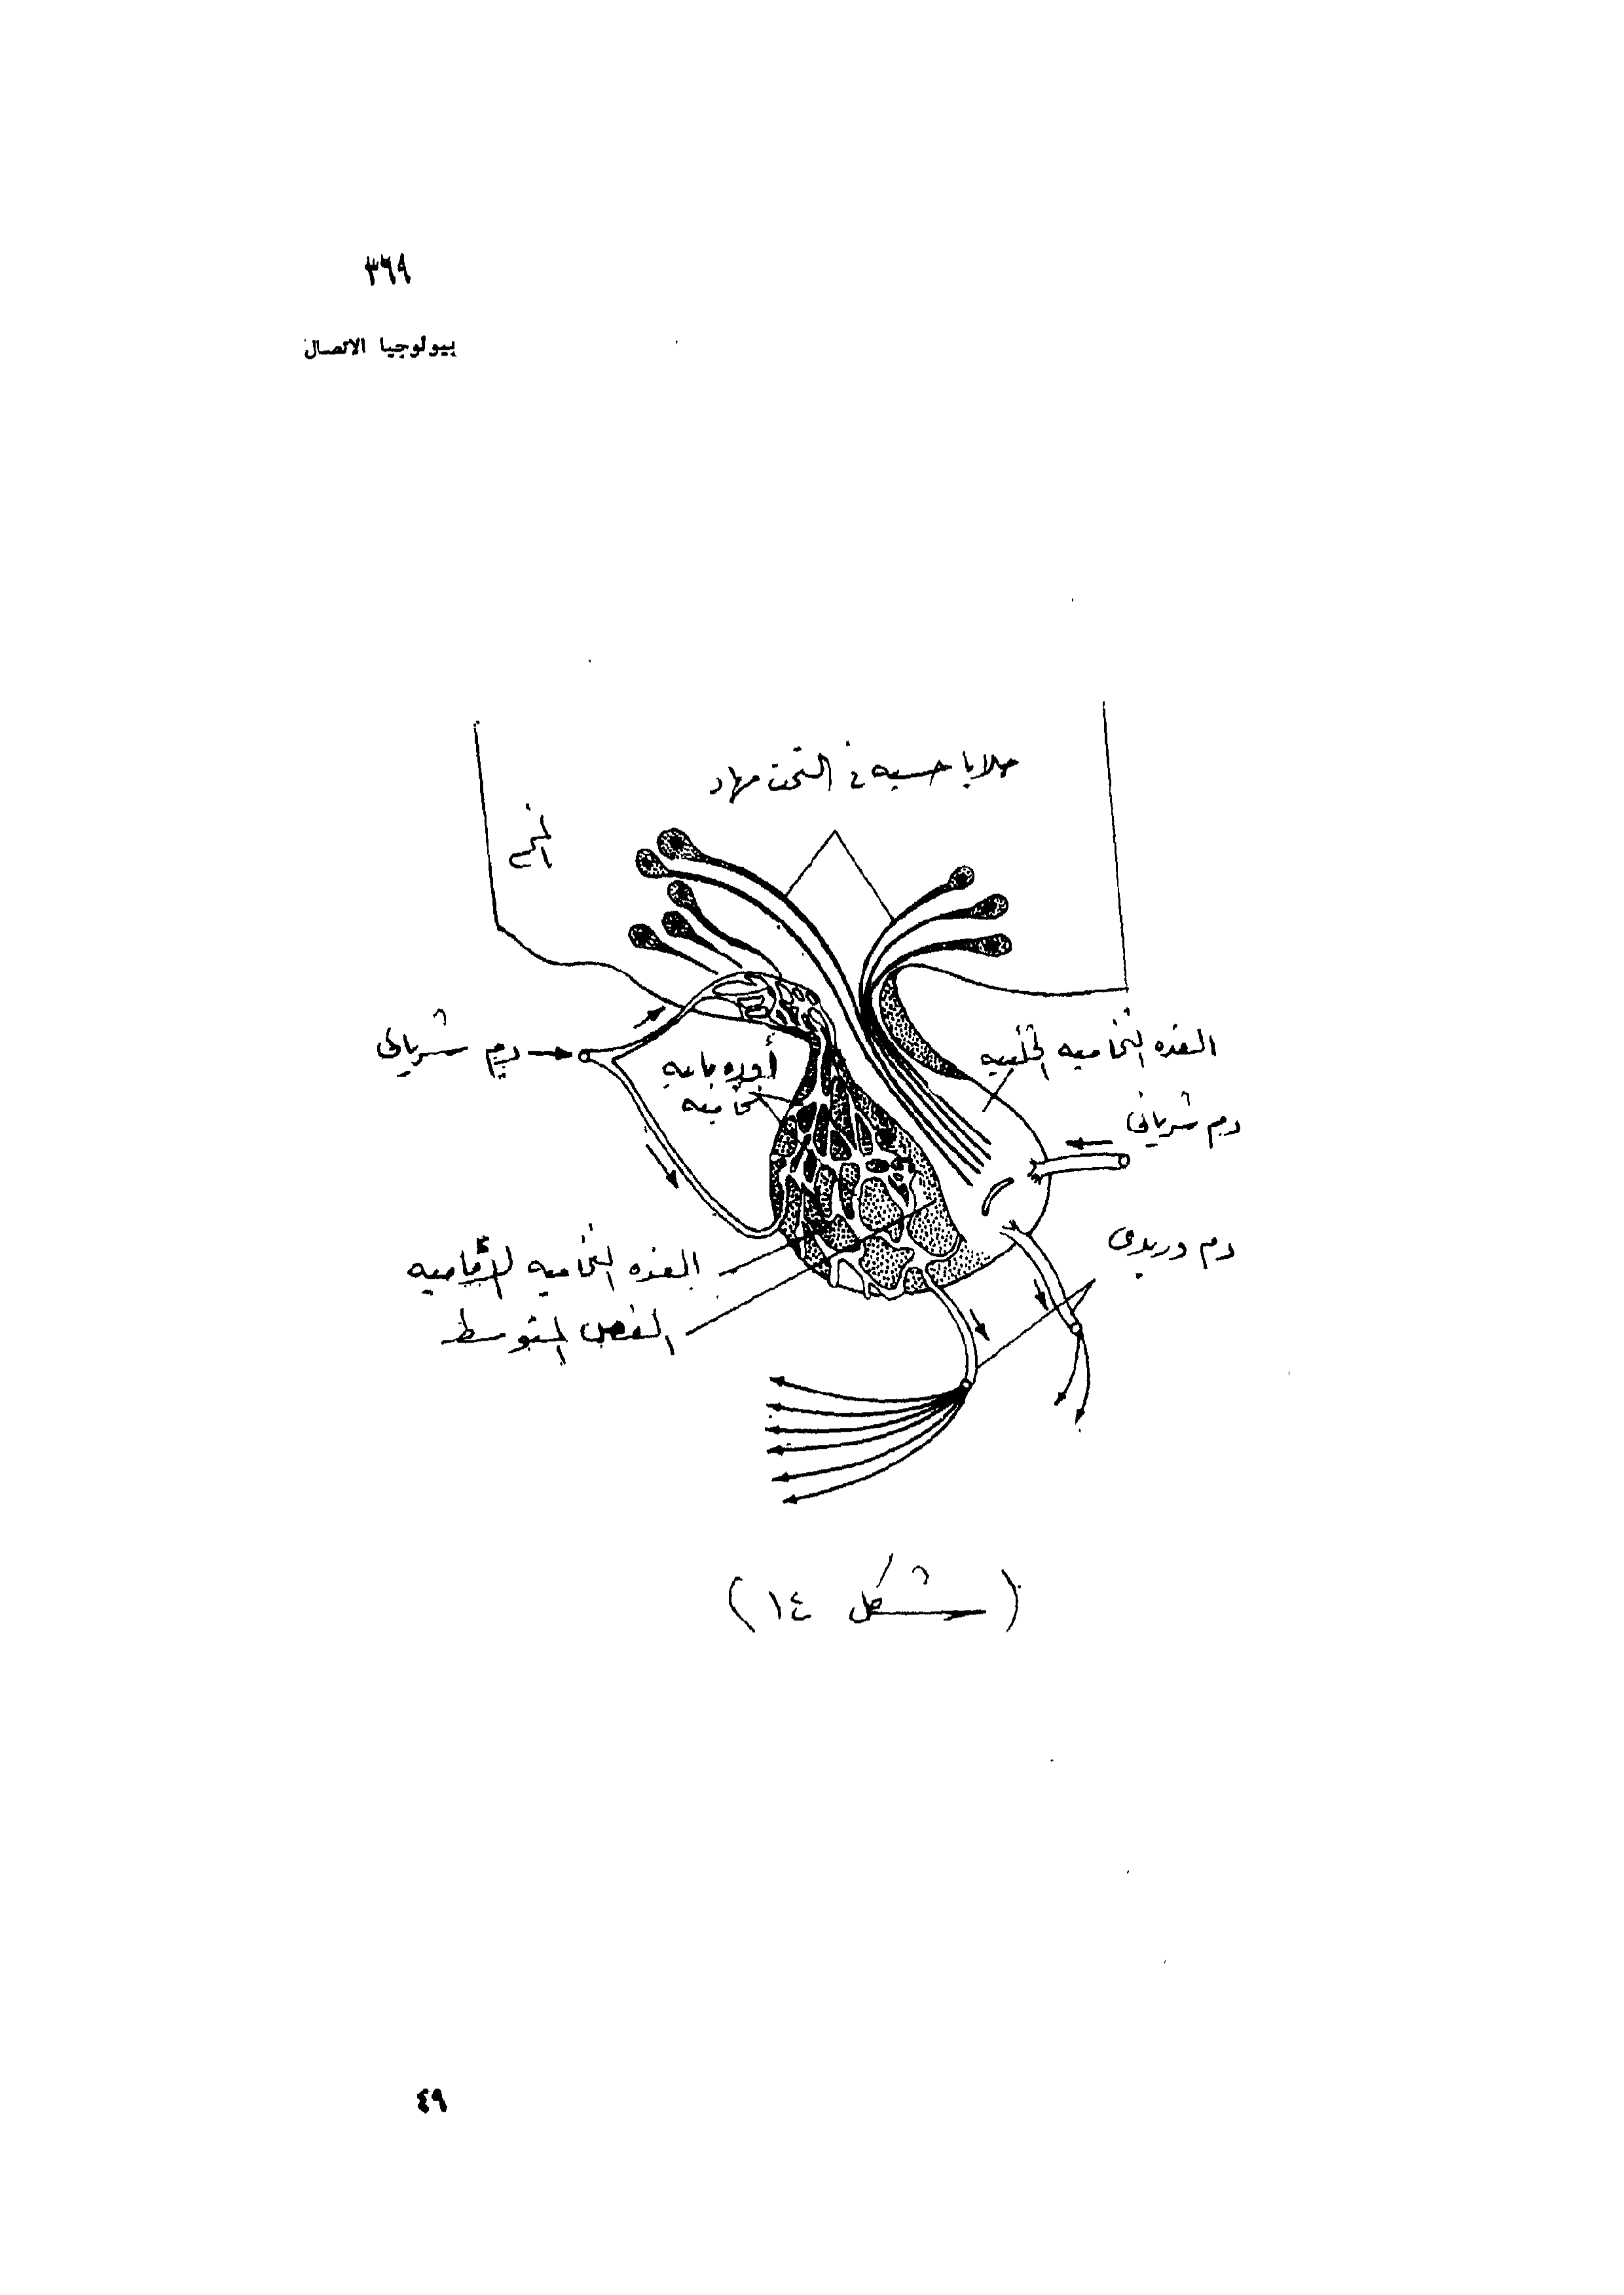 ٣٦٩
بيولوجيا الاتصال
خلايا حسيه في التحت مهاد
المخ
دم شرياني
أورده بابيه
نخاميه
الغده النخاميه الخلفيه
دم شرياني
دم وريدي
الغده النخاميه الأماميه
الفص المتوسط
(شكل ١٤)
٤٩